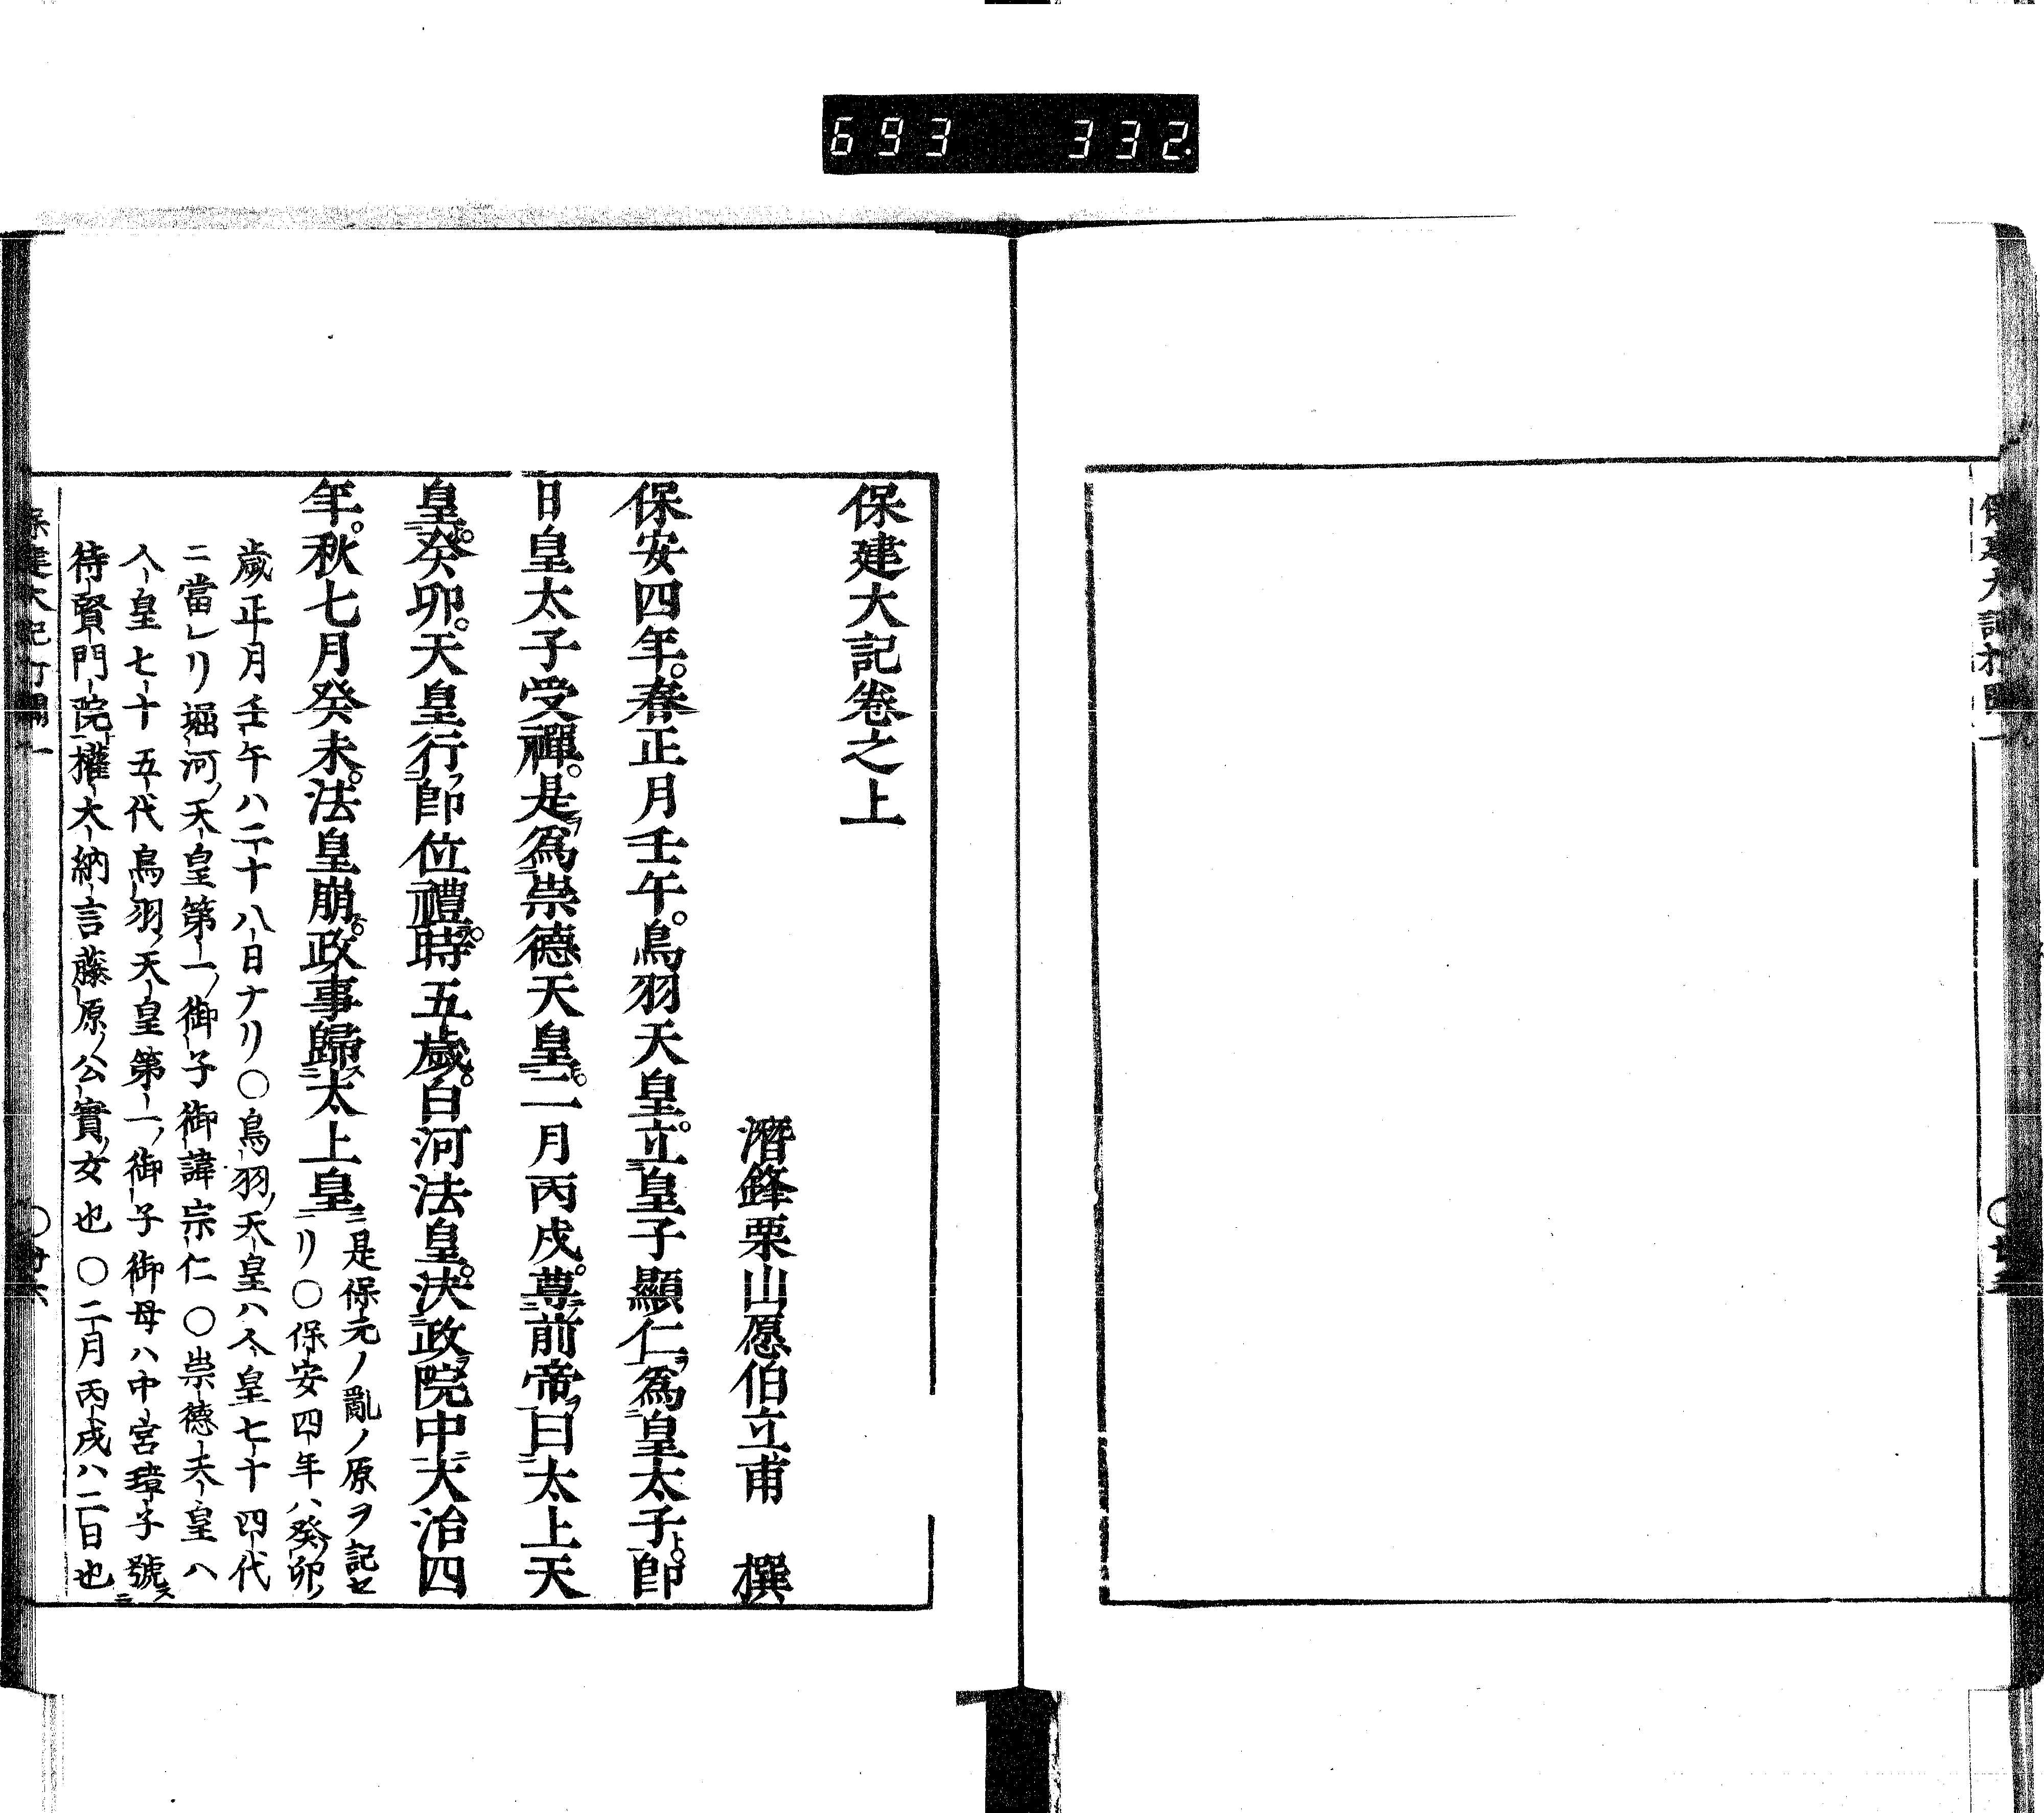 693 332
保建大記打聞一
保建大記卷之上
潛鋒栗山愿伯立甫 撰
保安四年。春正月壬午。鳥羽天皇。立皇子顯仁爲皇太子。卽
日皇太子受禪。是爲崇德天皇。二月丙戌。尊前帝曰太上天
皇。癸卯。天皇行卽位禮。時五歲。白河法皇。決政院中。大治四
年。秋七月癸未。法皇崩。政事歸太上皇
是保元ノ亂ノ原ヲ記セ
リ〇保安四年ハ癸卯ノ
歲正月壬午ハ二十八日ナリ〇鳥羽ノ天皇ハ人皇七十四代
ニ當レリ堀河ノ天皇第一ノ御子御諱宗仁〇崇德天皇ハ
人皇七十五代鳥羽ノ天皇第一ノ御子御母ハ中宮璋子號ス
待賢門院ト權大納言藤原ノ公實ノ女也〇二月丙戌ハ二日也
保建大記打聞一
〇廿六